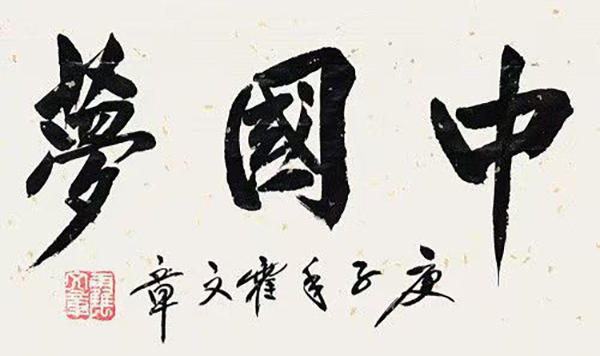 中國夢
庚子年霍文章